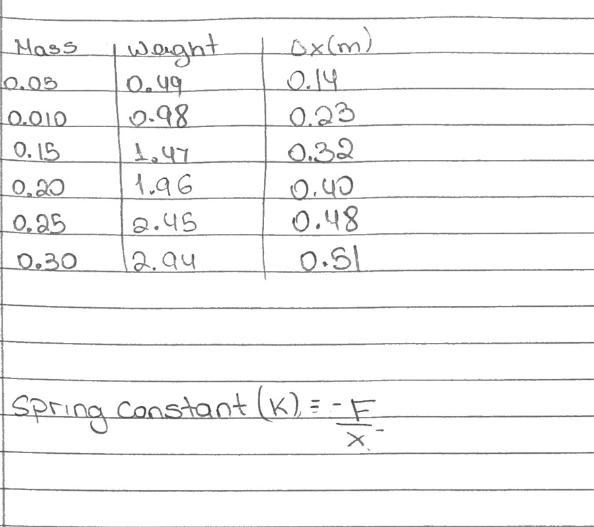 Mass Weight Δx(m)
0.05 0.49 0.14
0.010 0.98 0.23
0.15 1.47 0.32
0.20 1.96 0.40
0.25 2.45 0.48
0.30 2.94 0.51
Spring constant (K) = -F/x